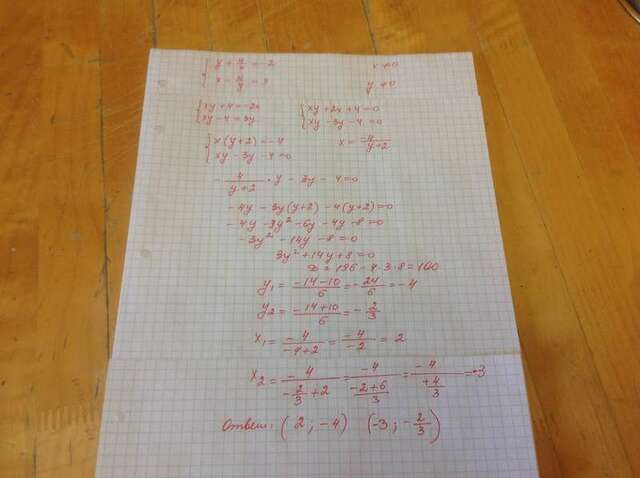 { y + 4/x = -2    x ≠ 0
{ x - 4/y = 3    y ≠ 0
{ xy + 4 = -2x    { xy + 2x + 4 = 0
{ xy - 4 = 3y    { xy - 3y - 4 = 0
{ x(y+2) = -4    x = -4/(y+2)
{ xy - 3y - 4 = 0
- 4/(y+2) · y - 3y - 4 = 0
-4y - 3y(y+2) - 4(y+2) = 0
-4y - 3y² - 6y - 4y - 8 = 0
-3y² - 14y - 8 = 0
3y² + 14y + 8 = 0
D = 196 - 4·3·8 = 100
y₁ = (-14-10)/6 = -24/6 = -4
y₂ = (-14+10)/6 = -2/3
x₁ = -4/(-4+2) = -4/-2 = 2
x₂ = -4/(-2/3+2) = -4/((-2+6)/3) = -4/(+4/3) = -3
Ответ: (2; -4) (-3; -2/3)